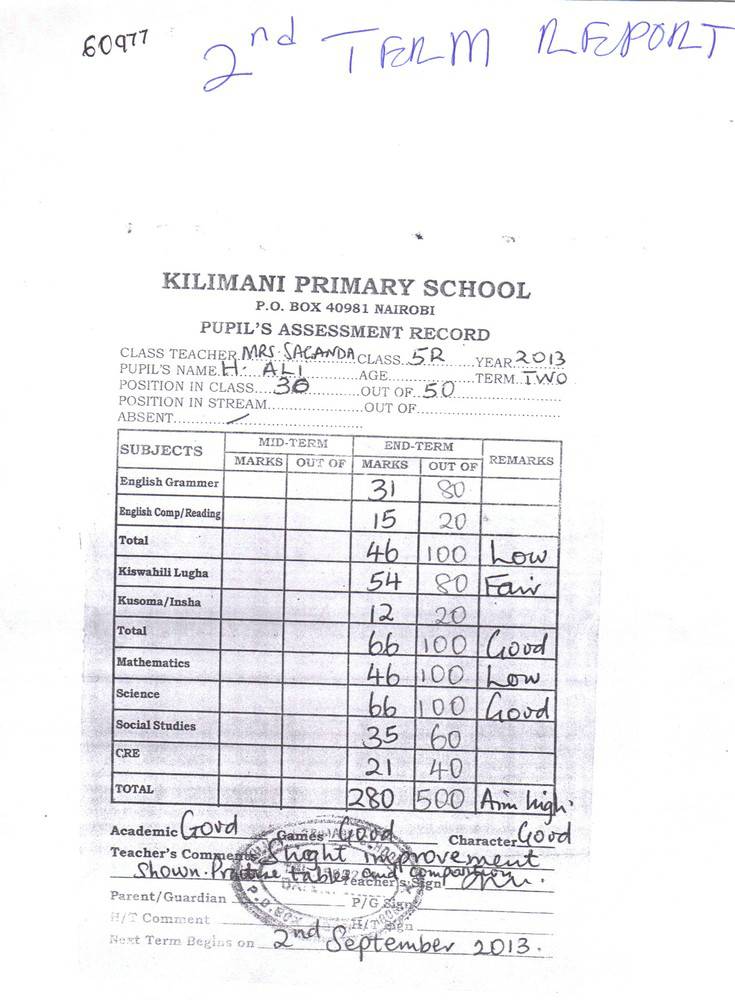 60977
2nd TERM REPORT
KILIMANI PRIMARY SCHOOL
P.O. BOX 40981 NAIROBI
PUPIL'S ASSESSMENT RECORD
CLASS TEACHER MRS. SAGANDA CLASS 5R YEAR 2013
PUPIL'S NAME H. ALI AGE TERM TWO
POSITION IN CLASS 36 OUT OF 50
POSITION IN STREAM OUT OF
ABSENT /
SUBJECTS MID-TERM END-TERM REMARKS
MARKS OUT OF MARKS OUT OF
English Grammer 31 80
English Comp/Reading 15 20
Total 46 100 Low
Kiswahili Lugha 54 80 Fair
Kusoma/Insha 12 20
Total 66 100 Good
Mathematics 46 100 Low
Science 66 100 Good
Social Studies 35 60
CRE 21 40
TOTAL 280 500 Aim high.
Academic Good Games Good Character Good
Teacher's Comments Slight improvement
shown. Practise tables and Teacher's Sign
Parent/Guardian P/G Sign
H/T Comment H/T Sign
Next Term Begins on 2nd September 2013.
P.O. BOX